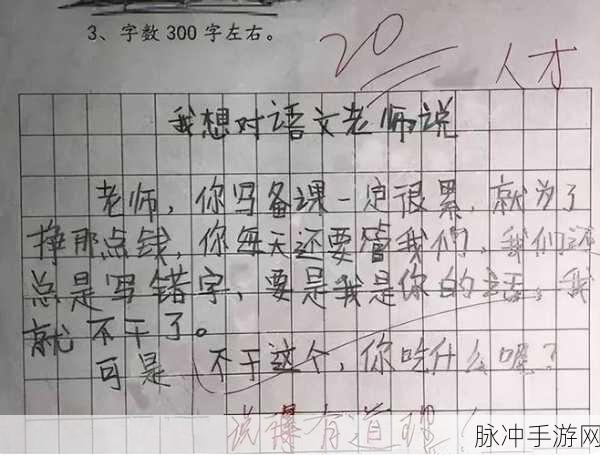 3、字数300字左右。
20
人才
我想对语文老师说
老师，你写备课一定很累，就为了
挣那点钱，你每天还要管我们，我们还
总是写错字，要是我是你的话，我
就不干了。
可是 不干这个，你吃什么呢？
说得有道理！
脉冲手游网